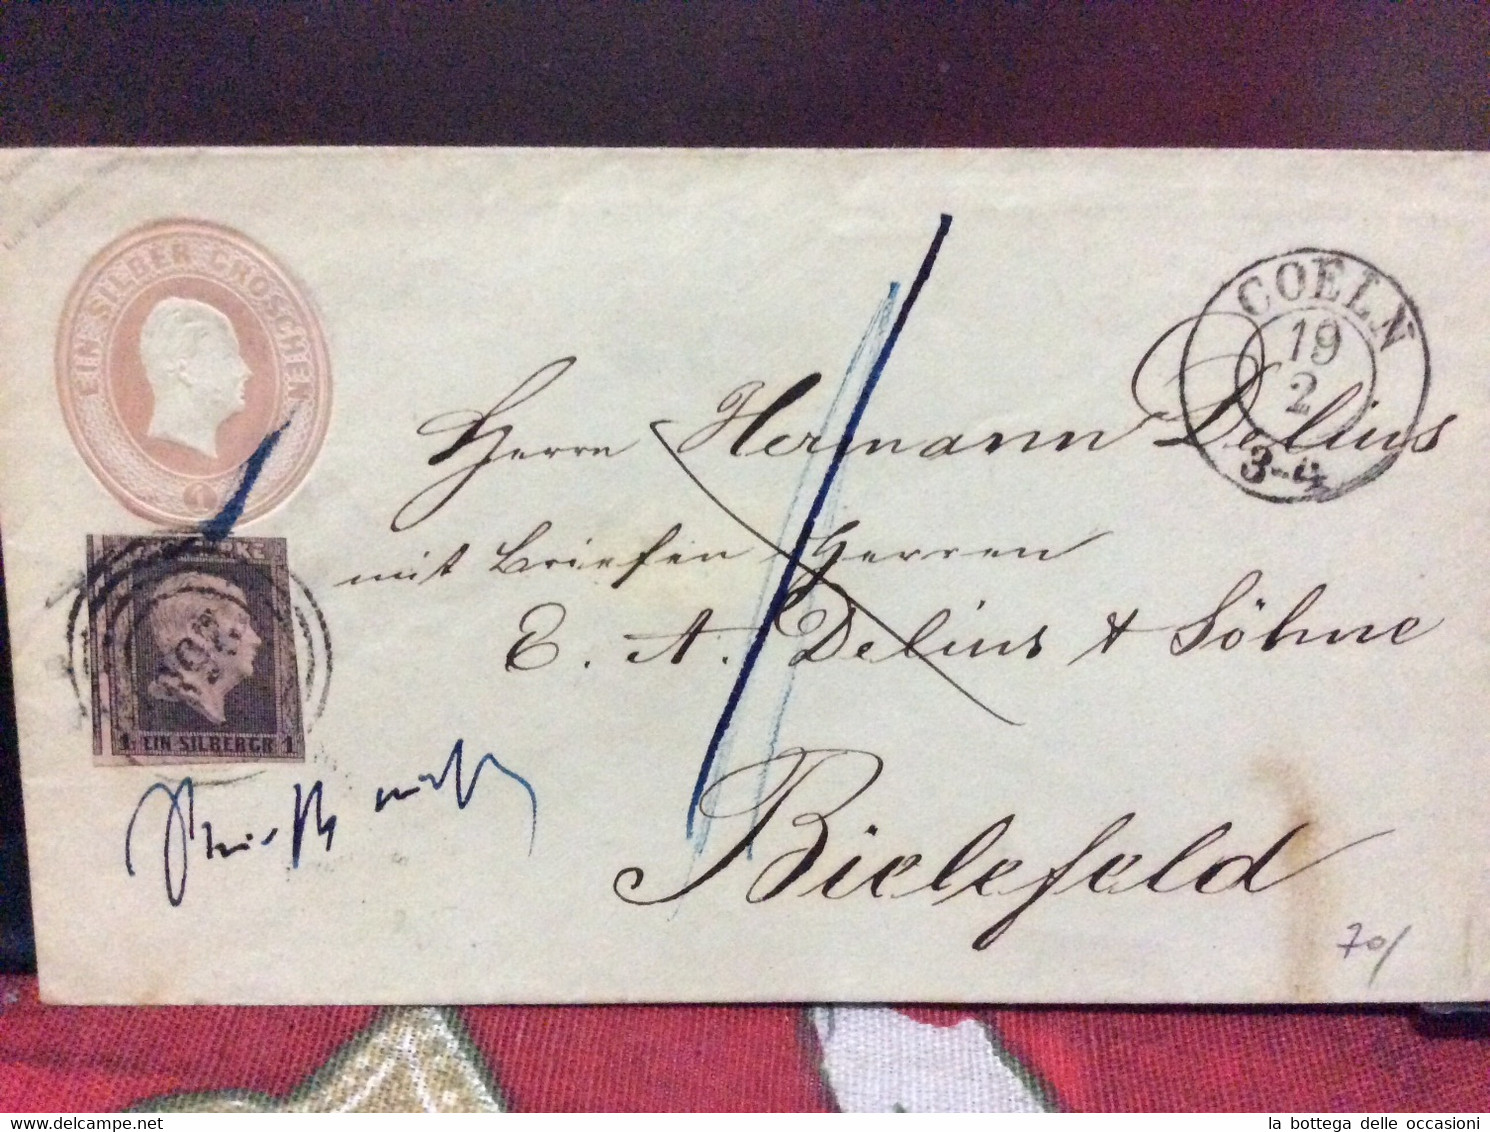 EIN SILBER GROSCHEN
1
COELN
19
2
3-4
Herrn Hermann Delius
mit Briefen Herren
E. A. Delius & Söhne
Bielefeld
1 EIN SILBERGR 1
70/
la bottega delle occasioni
delcampe.net